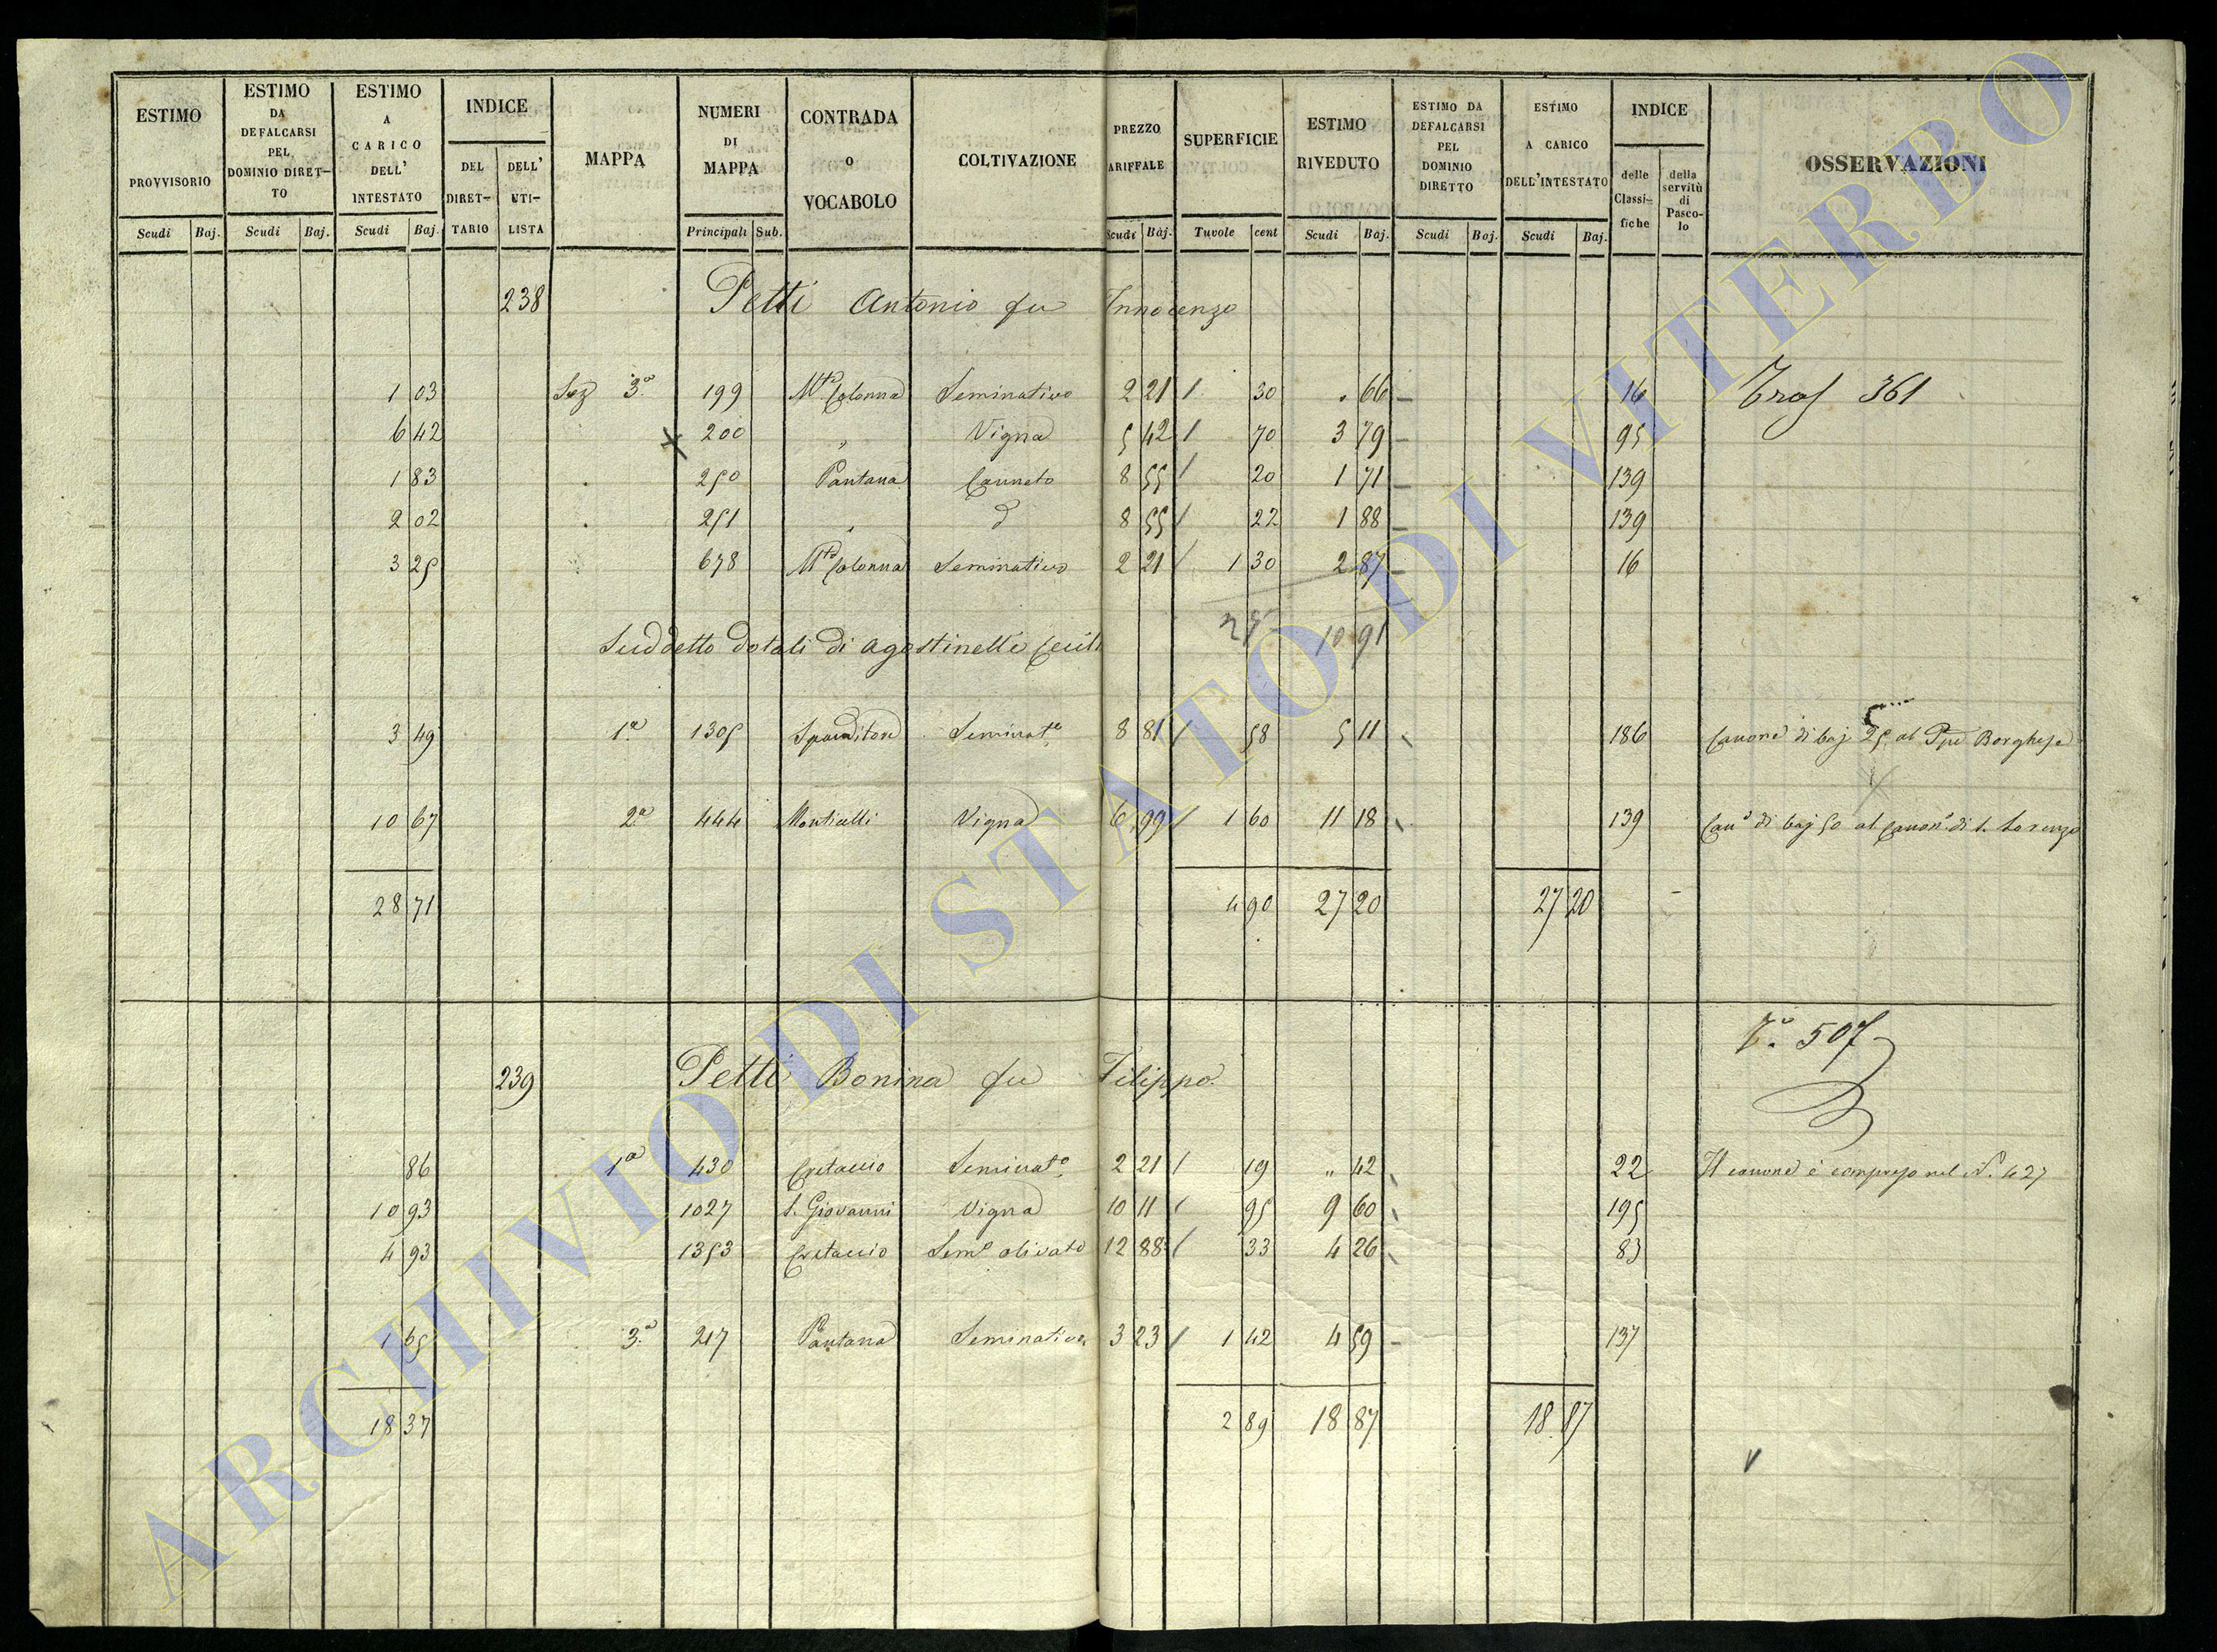 ESTIMO PROVVISORIO Scudi Baj.
ESTIMO DA DEFALCARSI PEL DOMINIO DIRET-TO Scudi Baj.
ESTIMO A CARICO DELL' INTESTATO Scudi Baj.
INDICE DEL DIRET-TARIO DELL' UTI-LISTA
MAPPA
NUMERI DI MAPPA Principali Sub.
CONTRADA O VOCABOLO
COLTIVAZIONE
PREZZO ARIFFALE Scudi Baj.
SUPERFICIE Tavole cent
ESTIMO RIVEDUTO Scudi Baj.
ESTIMO DA DEFALCARSI PEL DOMINIO DIRETTO Scudi Baj.
ESTIMO A CARICO DELL'INTESTATO Scudi Baj.
INDICE delle Classi-fiche della servitù di Pasco-lo
OSSERVAZIONI
238 Petti Antonio fu Innocenzo
1 03 Sez 3ª 199 Mte Colonna Seminativo 2 21 / 30 . 66 16 Tras 361
6 42 x 200 " Vigna 5 42 / 70 3 79 95
1 83 . 250 Pantana Canneto 8 55 / 20 1 71 139
2 02 . 251 " d 8 55 / 22 1 88 139
3 25 678 Mte Colonna Seminativo 2 21 / 1 30 2 87 16
10 91
Suddetto dotali di Agostinelli
3 49 1ª 1305 Seminato 8 81 / 58 5 11 186 Canone di baj 25 al Ppe Borghese
10 67 2ª 444 Monticelli Vigna 6 99 / 1 60 11 18 139 Cane di baj 50 al Canonto di S. Lorenzo
28 71 4 90 27 20 27 20
Vo. 507
239 Petti Bonina fu Filippo
86 1ª 430 Cretaccio Seminato 2 21 / 19 " 42 22 Il canone è compreso nel N. 427
10 93 1027 S. Giovanni Vigna 10 11 / 95 9 60 195
4 93 1353 Cretaccio Semo olivato 12 88 / 33 4 26 83
1 65 3ª 217 Pantana Seminativo 3 23 / 1 42 4 59 137
18 37 2 89 18 87 18 87
ARCHIVIO DI STATO DI VITERBO